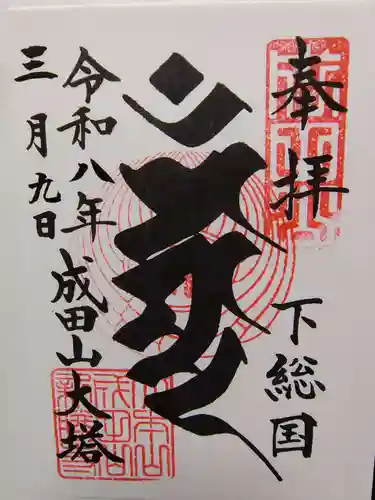 奉拝
下総国
令和八年
三月九日
成田山大塔